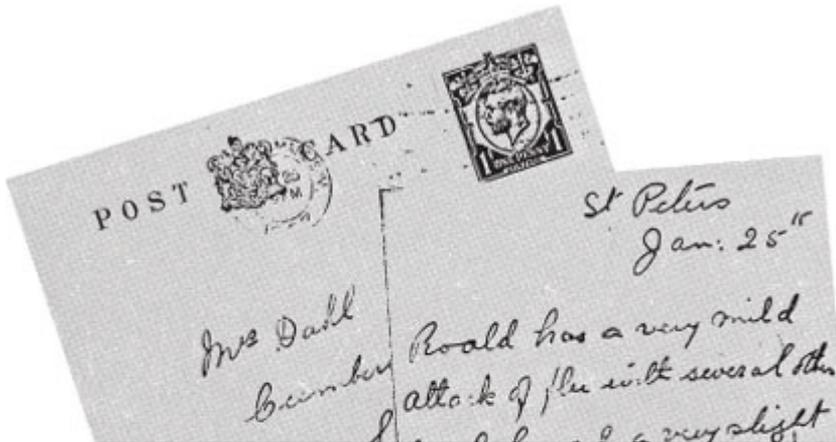 POST CARD
ONE PENNY
Mrs Dahl
Cumber
St Peters
Jan: 25"
Roald has a very mild
attack of flu with several other
a very slight